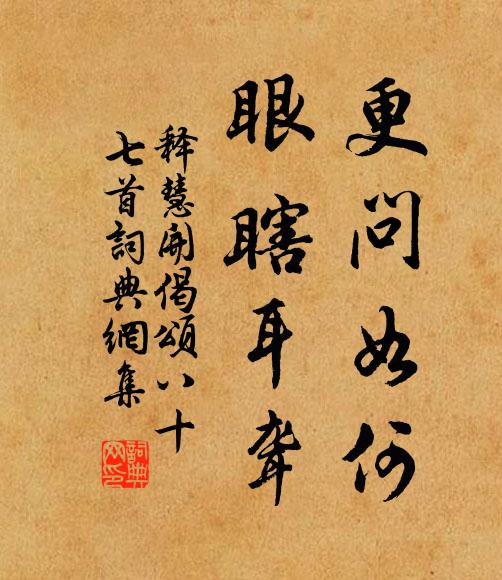 更问如何
眼瞎耳聋
释慧开偈颂八十
七首詞典網集
詞典
网印